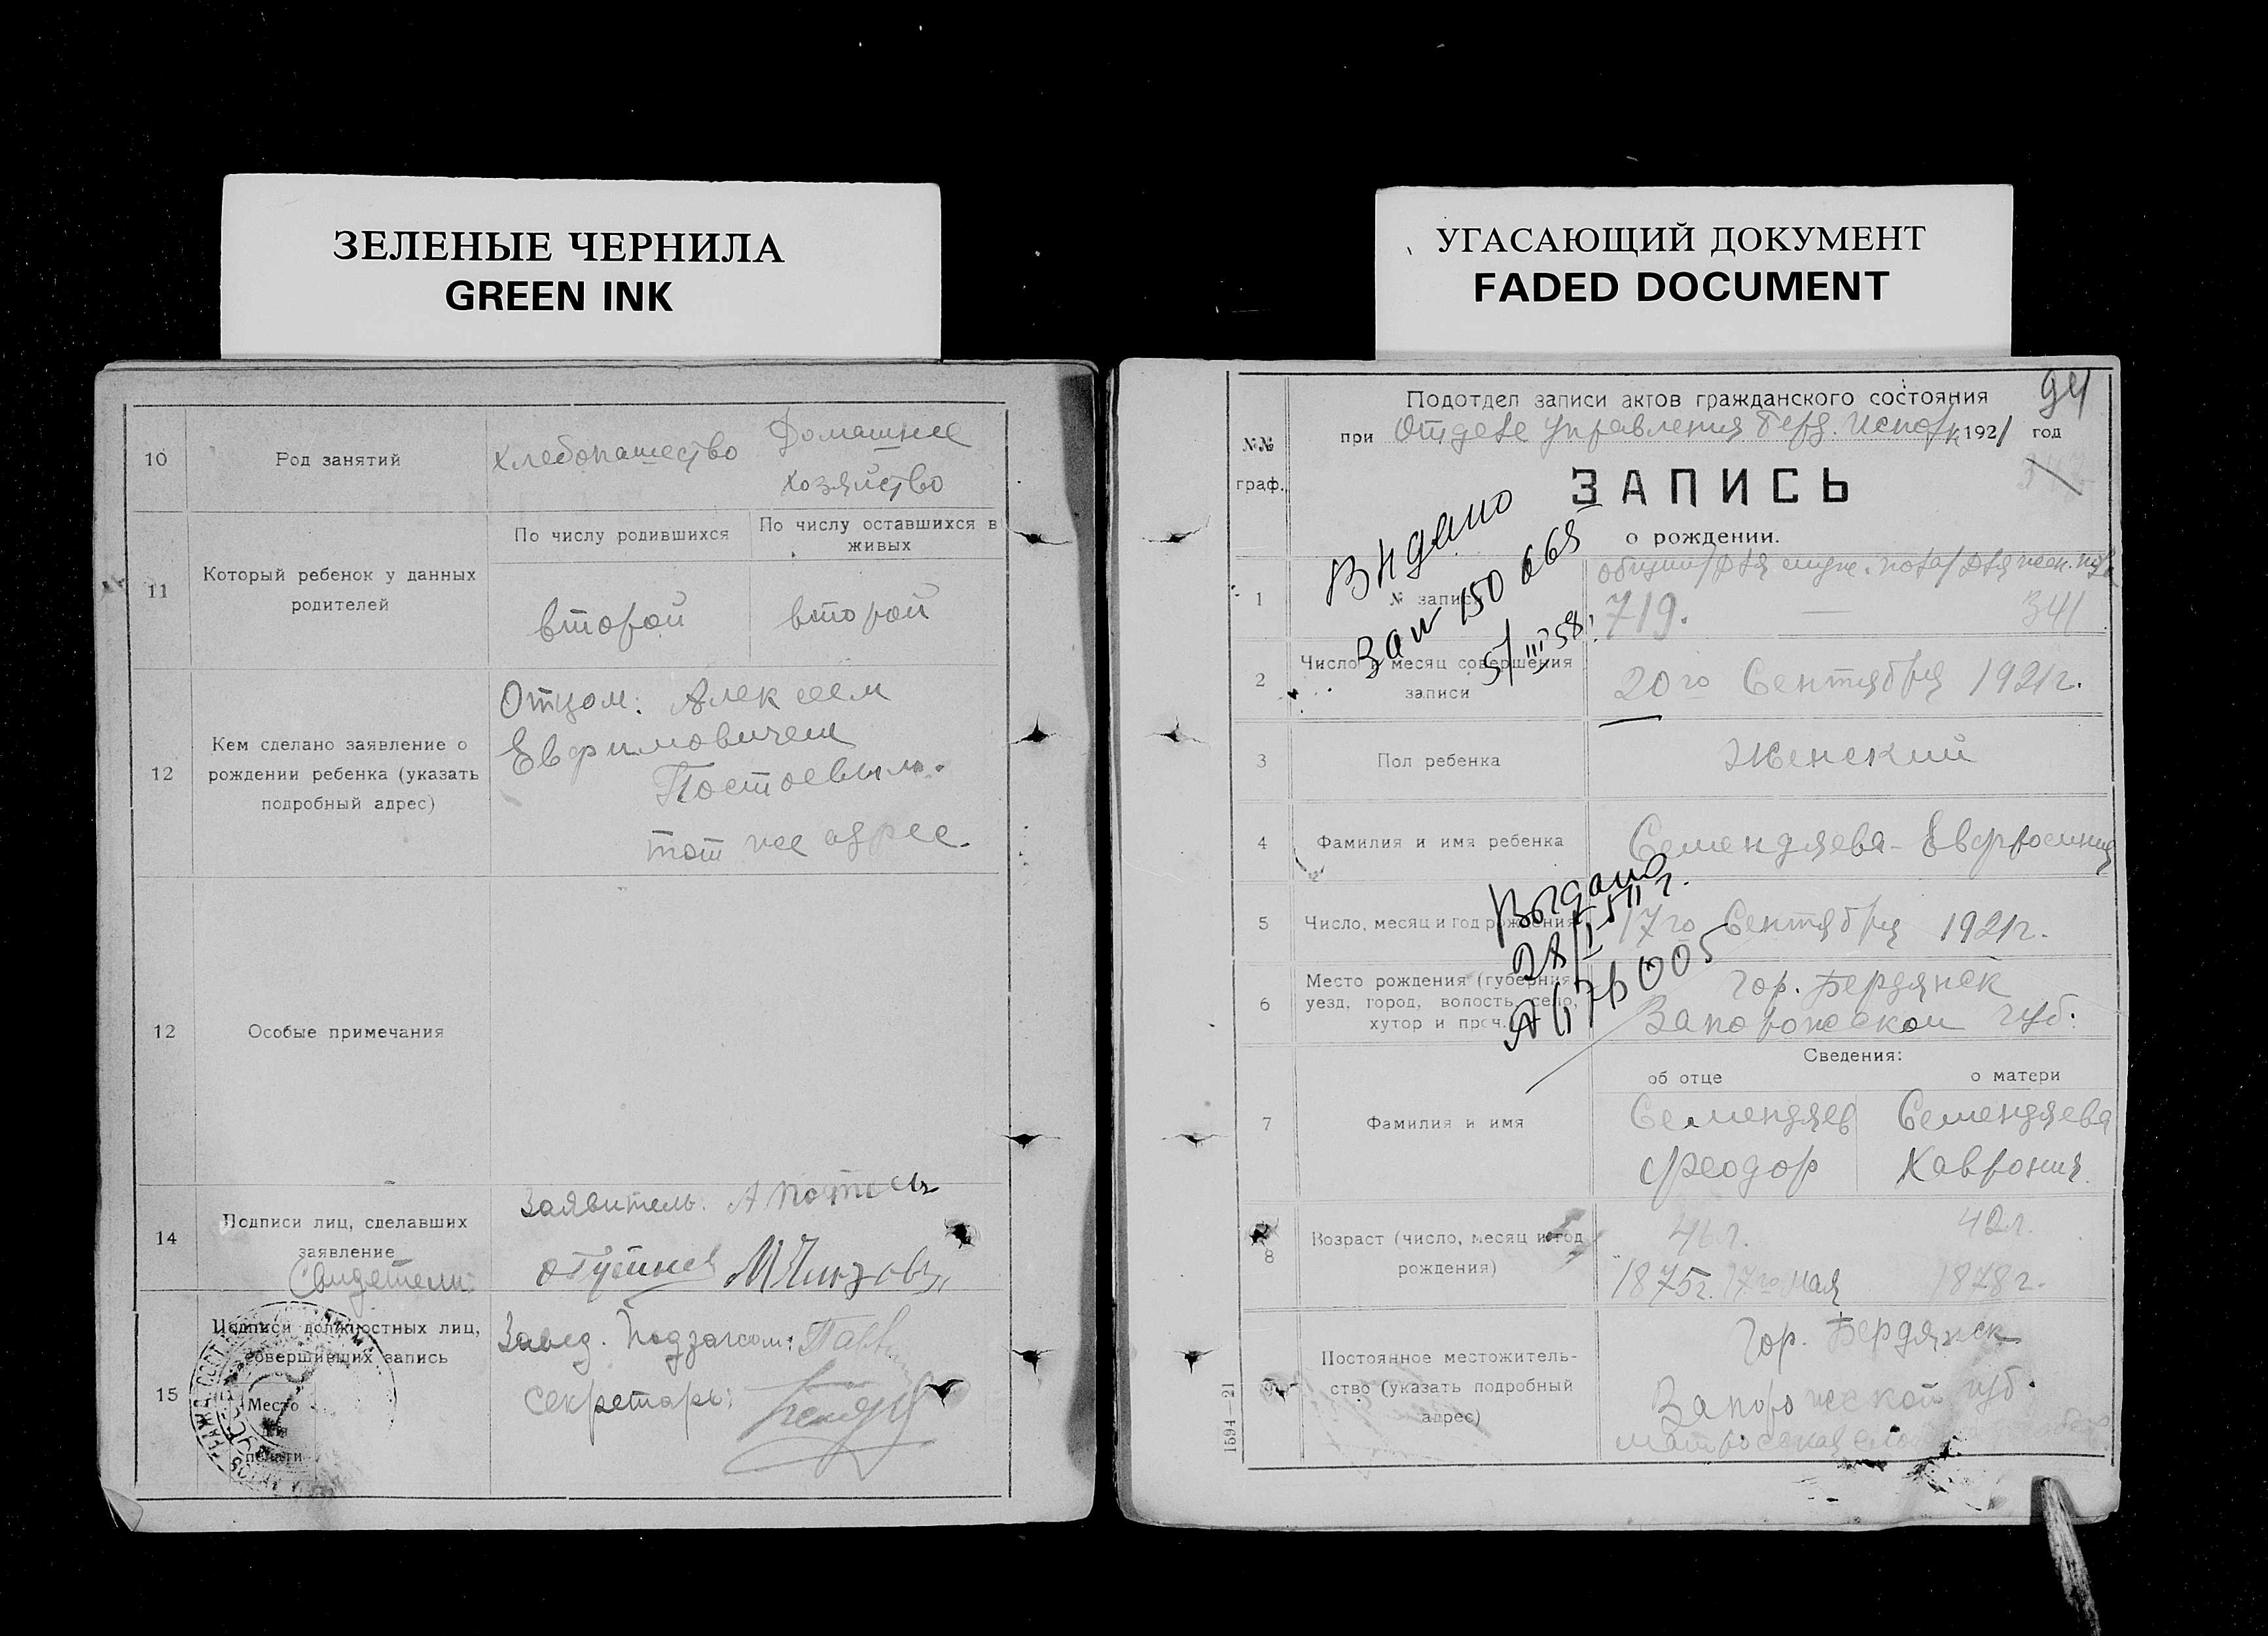 ЗЕЛЕНЫЕ ЧЕРНИЛА
GREEN INK
10
Род занятий
хлебопашество
Домашнее
хозяйство
11
Который ребенок у данных
родителей
По числу родившихся
По числу оставшихся в
живых
второй
второй
12
Кем сделано заявление о
рождении ребенка (указать
подробный адрес)
Отцом: Алексеем
Евфимовичем
Постоевым.
тот же адрес.
12
Особые примечания
14
Подписи лиц, сделавших
заявление
Свидетели:
Заявитель: А
15
Подписи должностных лиц,
совершивших запись
Место
для
печати
Завед. Подзагсом:
Секретарь:
УГАСАЮЩИЙ ДОКУМЕНТ
FADED DOCUMENT
94
Подотдел записи актов гражданского состояния
при Отделе Управления Берд. Исполк. 1921 год
№№
граф.
ЗАПИСЬ
о рождении.
Видано
150 665
5/III 58
1
№ записи
общий/для муж. пола/для жен. пола
719. — 341
2
Число и месяц совершения
записи
20го Сентября 1921г.
3
Пол ребенка
Женский
4
Фамилия и имя ребенка
Семендяева - Евфросиния
Выдано
28/I-51г.
5
Число, месяц и год рождения
17го Сентября 1921г.
6
Место рождения (губерния,
уезд, город, волость, село,
хутор и проч.)
гор. Бердянск
Запорожской губ.
Сведения:
об отце
о матери
7
Фамилия и имя
Семендяев
Феодор
Семендяева
Хаврония
8
Возраст (число, месяц и год
рождения)
46л.
1875г. 17го мая
42л.
1878г.
9
Постоянное местожитель-
ство (указать подробный
адрес)
гор. Бердянск
Запорожской губ.
Матросская
1594—21